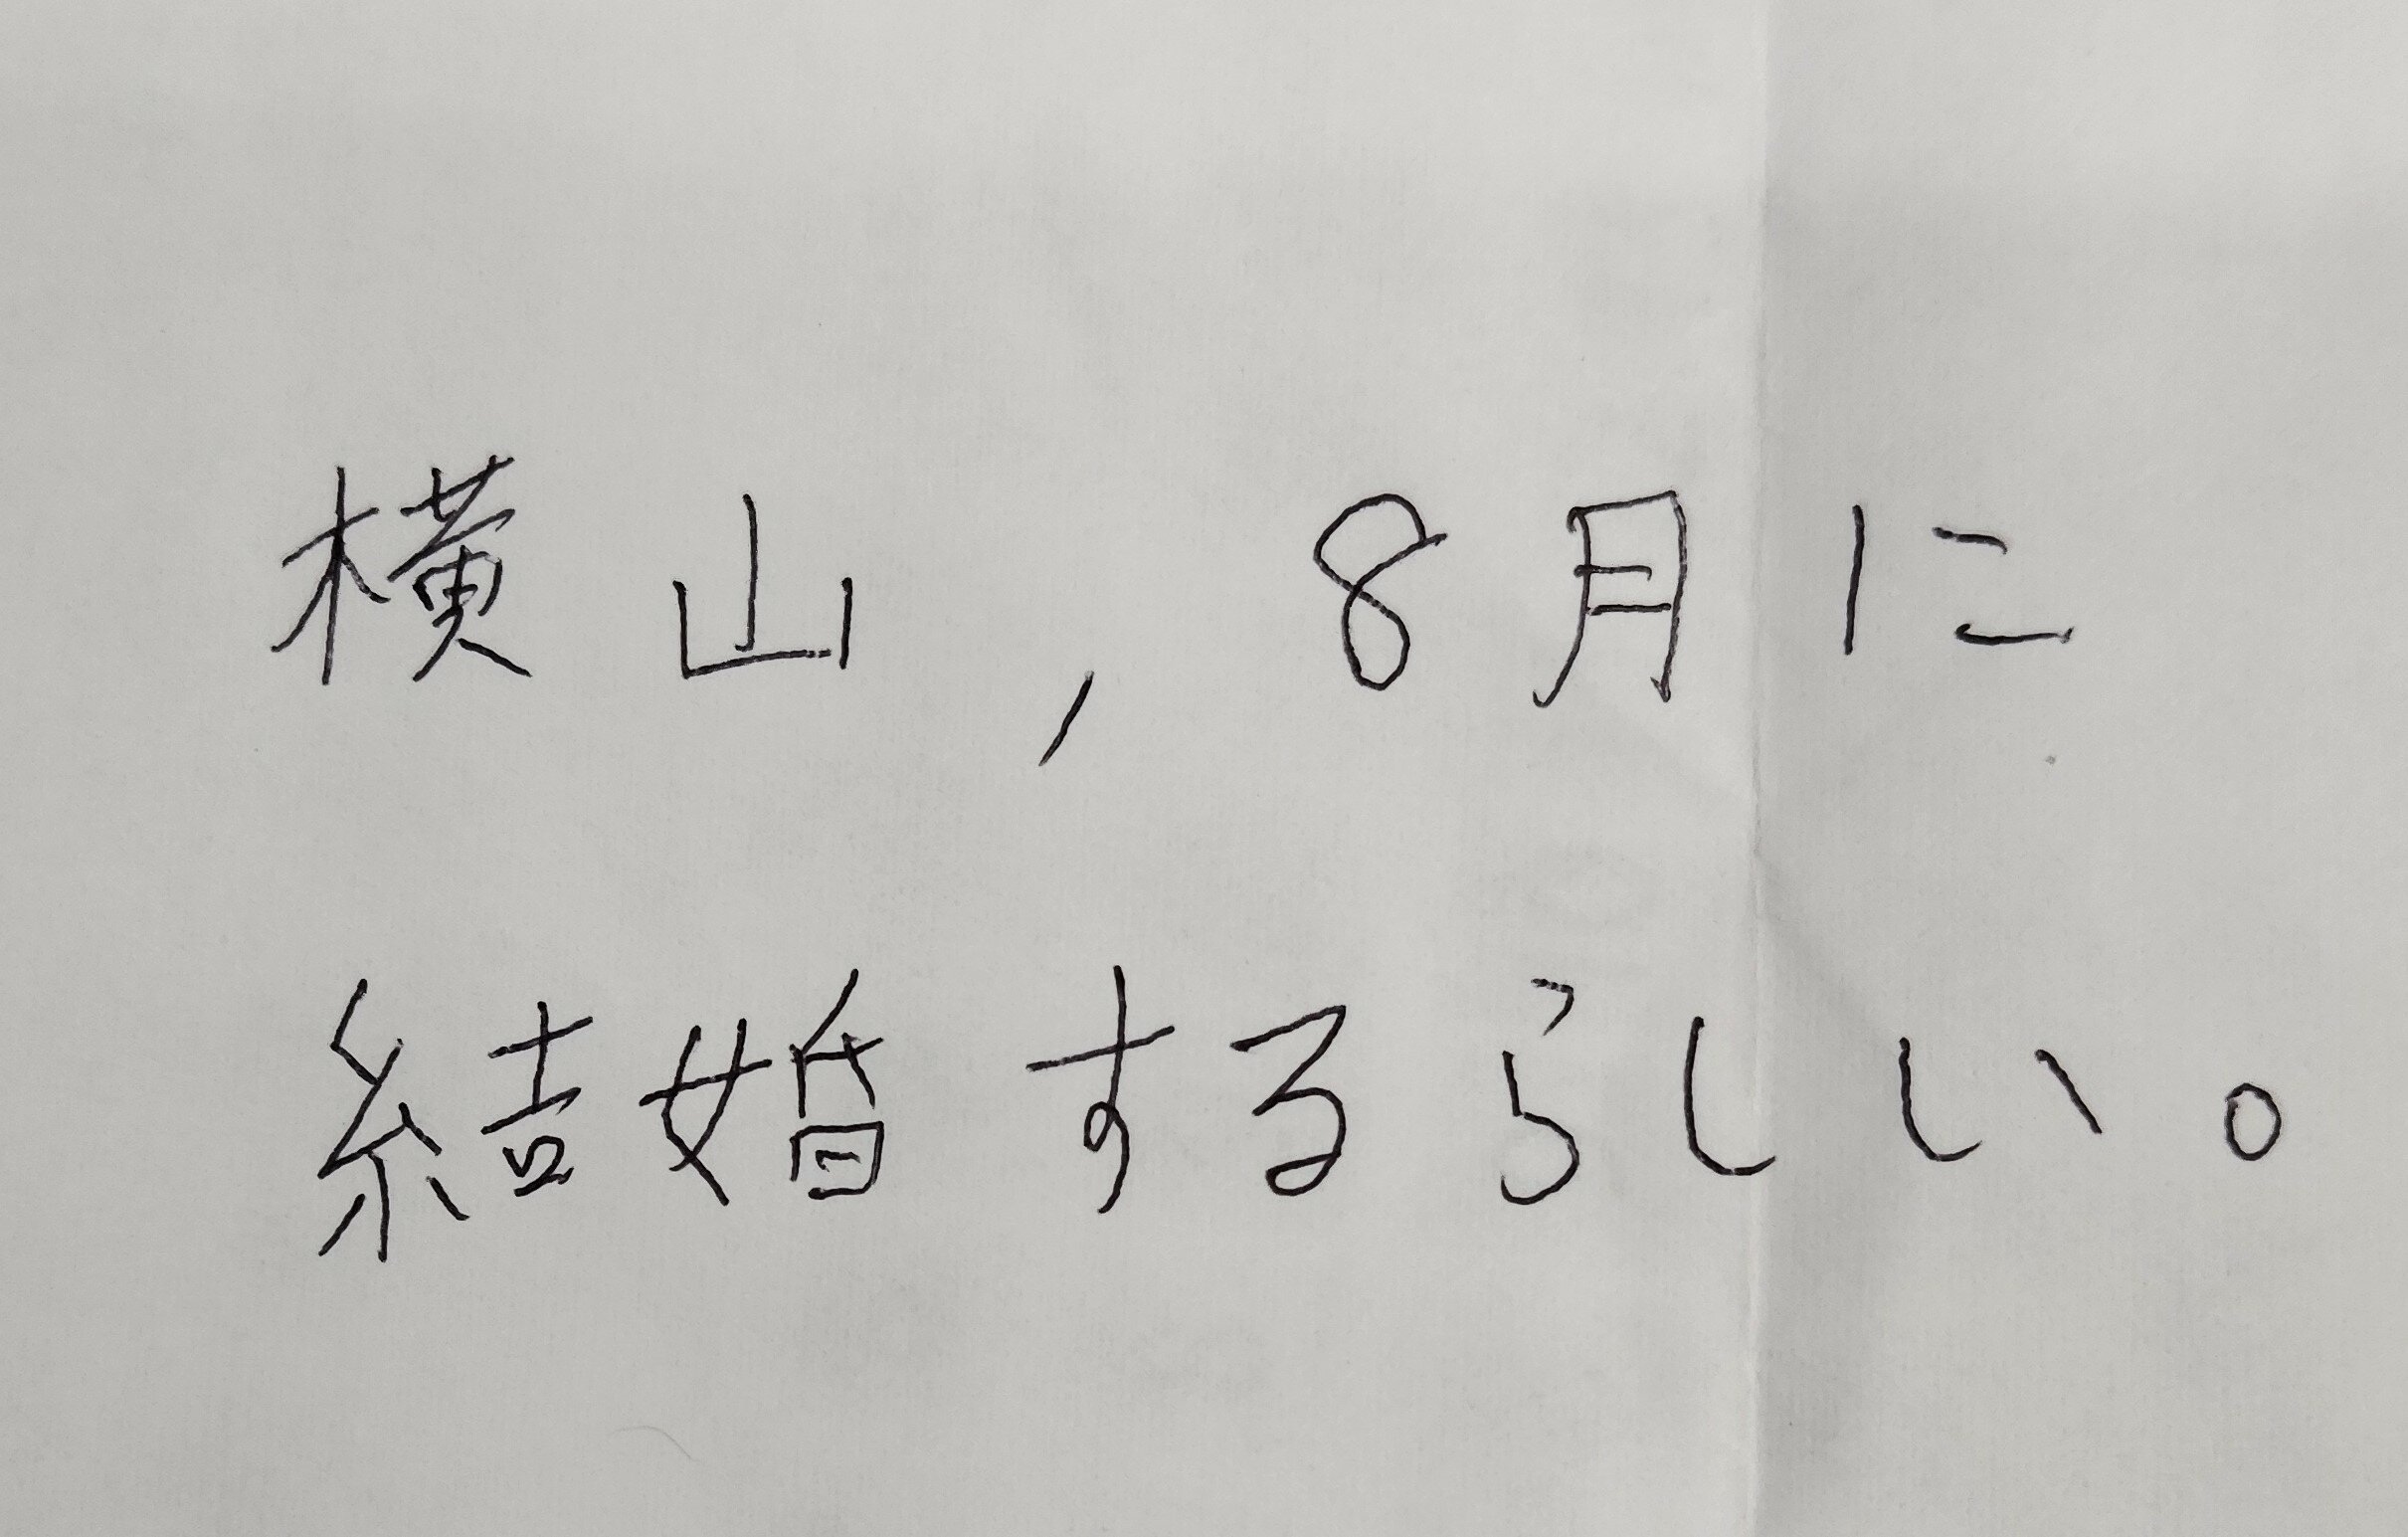 横山, 8月に
結婚するらしい。